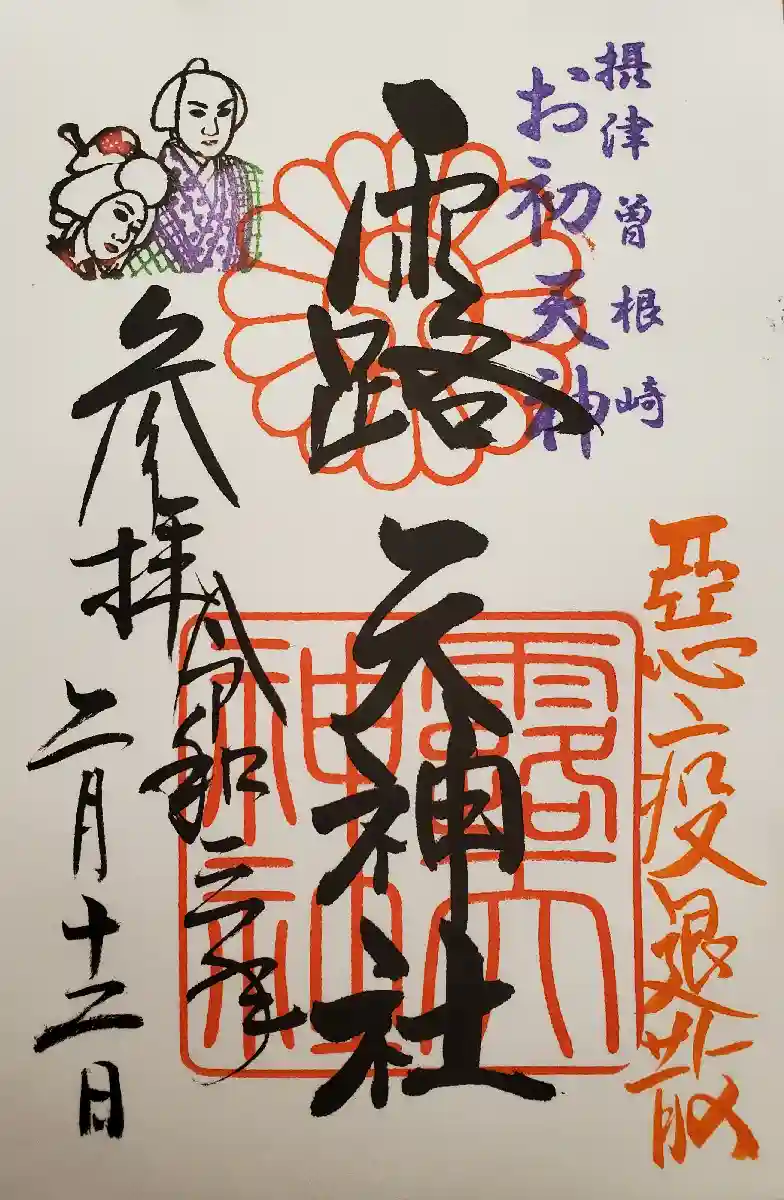 摂津曽根崎
お初天神
惡疫退散
露天神社
露天神社
参拝
令和三年
二月十二日